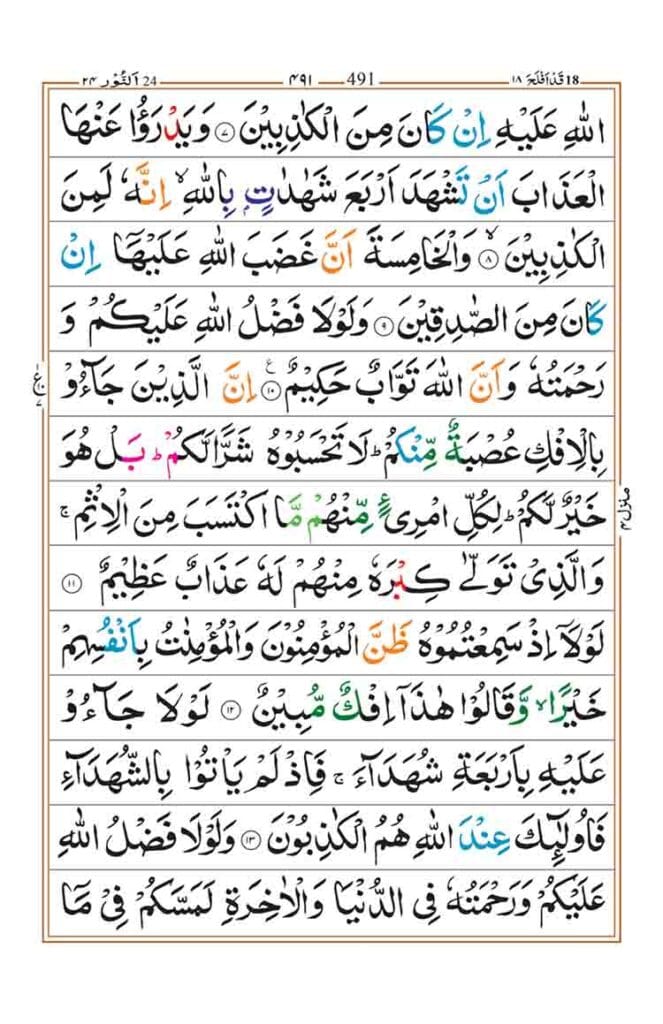 18 قَدْ اَفْلَحَ ۱۸ 491 ۴۹۱ 24 اَلنُّوْر ۲۴
اللّٰهِ عَلَیْهِ اِنْ كَانَ مِنَ الْكٰذِبِیْنَ ۷ وَ یَدْرَؤُا عَنْهَا
الْعَذَابَ اَنْ تَشْهَدَ اَرْبَعَ شَهٰدٰتٍۭ بِاللّٰهِۙ اِنَّهٗ لَمِنَ
الْكٰذِبِیْنَۙ ۸ وَالْخَامِسَةَ اَنَّ غَضَبَ اللّٰهِ عَلَیْهَاۤ اِنْ
كَانَ مِنَ الصّٰدِقِیْنَ ۹ وَلَوْلَا فَضْلُ اللّٰهِ عَلَیْكُمْ وَ
رَحْمَتُهٗ وَاَنَّ اللّٰهَ تَوَّابٌ حَكِیْمٌ ۱۰ ع اِنَّ الَّذِیْنَ جَآءُوْ
ع ۷
بِالْاِفْكِ عُصْبَةٌ مِّنْكُمْؕ لَا تَحْسَبُوْهُ شَرًّا لَّكُمْؕ بَلْ هُوَ
خَیْرٌ لَّكُمْؕ لِكُلِّ امْرِئٍ مِّنْهُمْ مَّا اكْتَسَبَ مِنَ الْاِثْمِۚ
منزل ۴
وَالَّذِیْ تَوَلّٰى كِبْرَهٗ مِنْهُمْ لَهٗ عَذَابٌ عَظِیْمٌ ۱۱
لَوْلَاۤ اِذْ سَمِعْتُمُوْهُ ظَنَّ الْمُؤْمِنُوْنَ وَالْمُؤْمِنٰتُ بِاَنْفُسِهِمْ
خَیْرًاۙ وَّقَالُوْا هٰذَاۤ اِفْكٌ مُّبِیْنٌ ۱۲ لَوْلَا جَآءُوْ
عَلَیْهِ بِاَرْبَعَةِ شُهَدَآءَۚ فَاِذْ لَمْ یَاْتُوْا بِالشُّهَدَآءِ
فَاُولٰٓئِكَ عِنْدَ اللّٰهِ هُمُ الْكٰذِبُوْنَ ۱۳ وَلَوْلَا فَضْلُ اللّٰهِ
عَلَیْكُمْ وَرَحْمَتُهٗ فِی الدُّنْیَا وَالْاٰخِرَةِ لَمَسَّكُمْ فِیْ مَاۤ